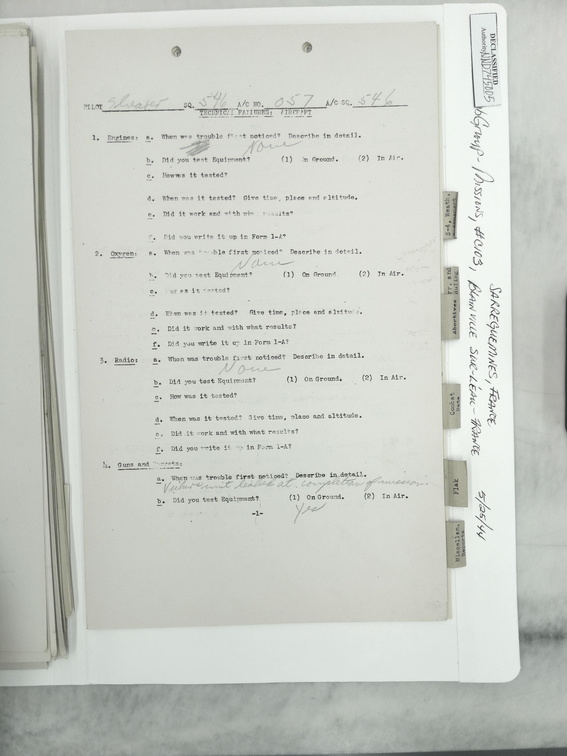 PILOT SQ. 546 A/C NO. 057 A/C SQ. 546
TECHNICAL FAILURES: AIRCRAFT
1. Engines: a. When was trouble first noticed? Describe in detail.
None
b. Did you test Equipment? (1) On Ground. (2) In Air.
c. How was it tested?
d. When was it tested? Give time, place and altitude.
e. Did it work and with what results?
f. Did you write it up in Form 1-A?
2. Oxygen: a. When was trouble first noticed? Describe in detail.
None
b. Did you test Equipment? (1) On Ground. (2) In Air.
c. How was it tested?
d. When was it tested? Give time, place and altitude.
e. Did it work and with what results?
f. Did you write it up in Form 1-A?
3. Radio: a. When was trouble first noticed? Describe in detail.
None
b. Did you test Equipment? (1) On Ground. (2) In Air.
c. How was it tested?
d. When was it tested? Give time, place and altitude.
e. Did it work and with what results?
f. Did you write it up in Form 1-A?
4. Guns and Turrets:
a. When was trouble first noticed? Describe in detail.
unit leaked at completion of mission
b. Did you test Equipment? (1) On Ground. (2) In Air.
Yes
-1-
DECLASSIFIED
Authority NND745005
Group - Missions, #C103, SARREGUEMINES, FRANCE
BLAINVILLE SUR-L'EAU - FRANCE
5/25/44
Combat
Flak
Miscellan.
Reports